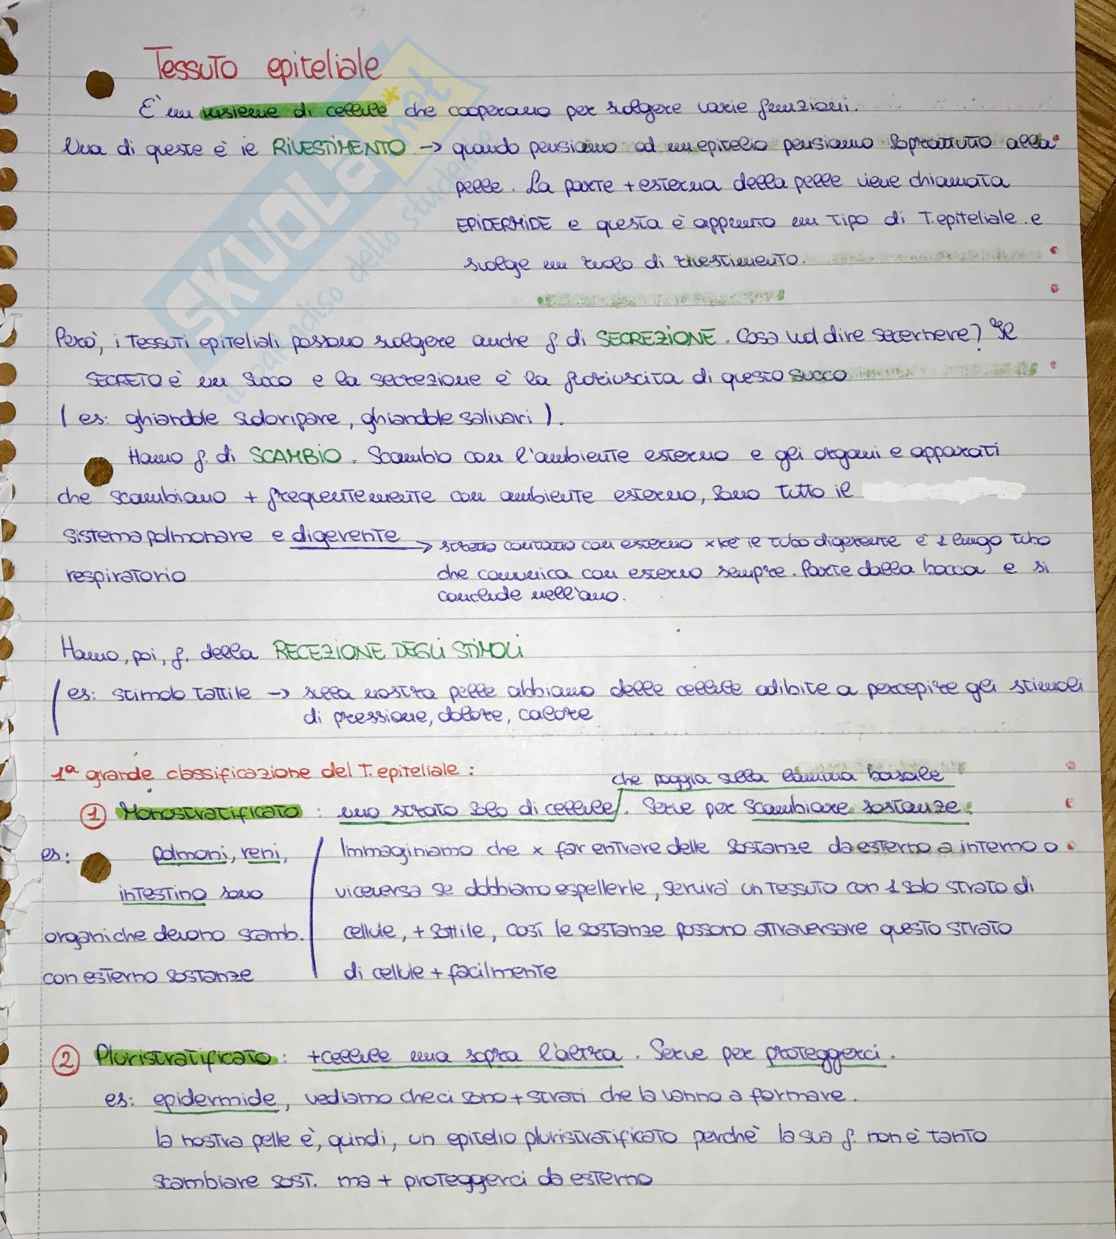 Tessuto epiteliale
È un insieme di cellule* che cooperano per svolgere varie funzioni.
Una di queste è il RIVESTIMENTO → quando pensiamo ad un epitelio pensiamo soprattutto alla
pelle. La parte + esterna della pelle viene chiamata
EPIDERMIDE e questa è appunto un tipo di T. epiteliale e
svolge un ruolo di rivestimento.
Però, i tessuti epiteliali possono svolgere anche f. di SECREZIONE. Cosa vuol dire secernere? Il
SECRETO è un succo e la secrezione è la fuoriuscita di questo succo
(es: ghiandole sudoripare, ghiandole salivari).
Hanno f. di SCAMBIO. Scambio con l'ambiente esterno e gli organi e apparati
che scambiano + frequentemente con ambiente esterno, sono tutto il
sistema polmonare e digerente → stretto contatto con esterno xké il tubo digerente è 1 lungo tubo
respiratorio che comunica con esterno sempre. Parte dalla bocca e si
conclude nell'ano.
Hanno, poi, f. della RECEZIONE DEGLI STIMOLI
es: stimolo tattile → sulla nostra pelle abbiamo delle cellule adibite a percepire gli stimoli
di pressione, dolore, calore
1ª grande classificazione del T. epiteliale:
che poggia sulla lamina basale
① Monostratificato: uno strato solo di cellule/. Serve per scambiare sostanze.
es: polmoni, reni, Immaginiamo che x far entrare delle sostanze da esterno a interno o
intestino sono viceversa se dobbiamo espellerle, servirà un tessuto con 1 solo strato di
organi che devono scamb. cellule, + sottile, così le sostanze possono attraversare questo strato
con esterno sostanze di cellule + facilmente
② Pluristratificato: + cellule una sopra l'altra. Serve per proteggerci.
es: epidermide, vediamo che ci sono + strati che la vanno a formare.
la nostra pelle è, quindi, un epitelio pluristratificato perchè la sua f. non è tanto
scambiare sost. ma + proteggerci da esterno
SKUOLA.net
il paradiso dello studente